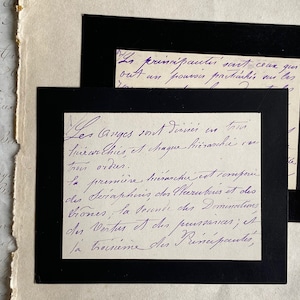 Les principautés sont ceux qui
ont un pouvoir particulier sur les
Les Anges sont divisés en trois
hiérarchies, et chaque hiérarchie en
trois ordres.
La première hiérarchie est composée
des Séraphins, des Chérubins et des
Trônes; la seconde des Dominations
des Vertus et des puissances; et
la troisième des Principautés,